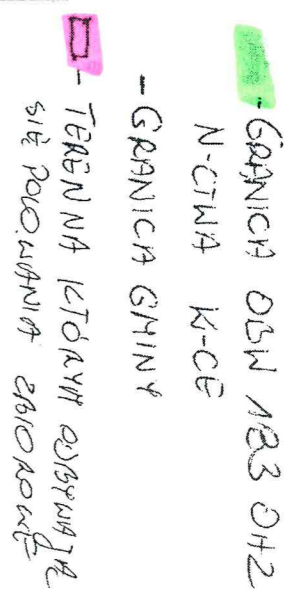 - GRANICA OBW 123 OHZ
N-CTWA K-CE
- GRANICA GMINY
- TEREN NA KTÓRYM ODBYWAJĄ
SIĘ POLOWANIA ZBIOROWE